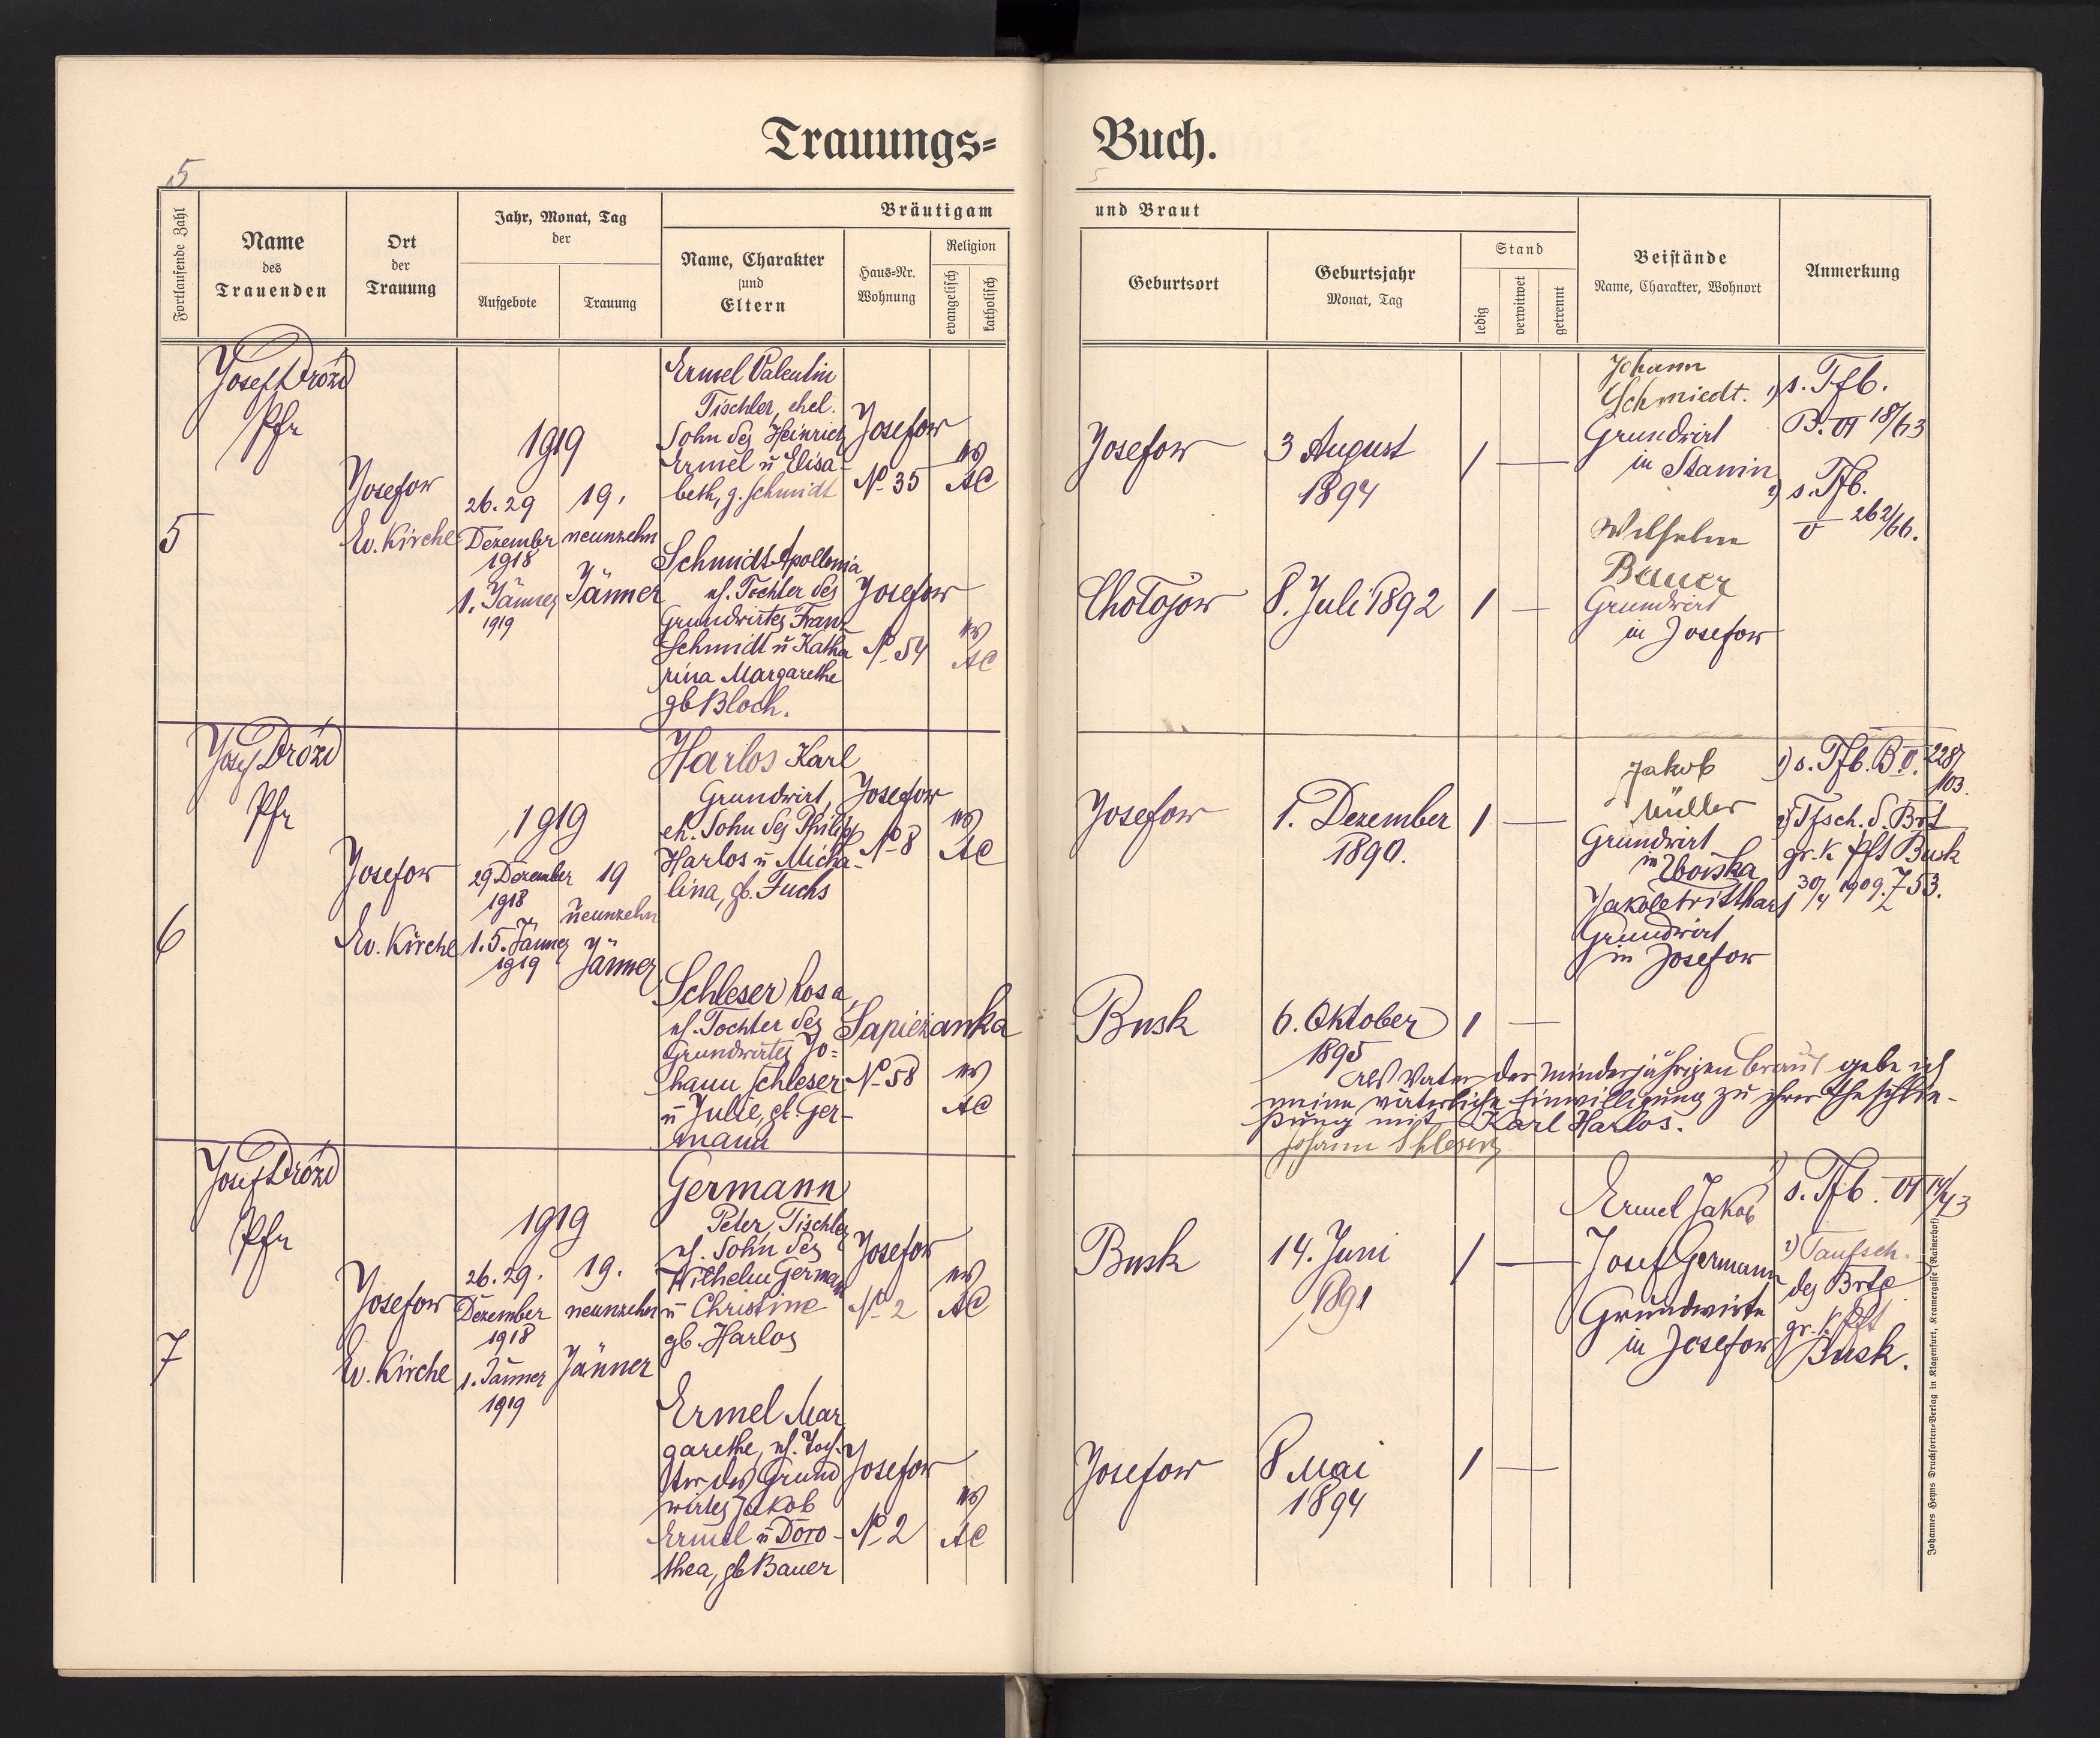 Trauungs=
Buch.
5
5
Fortlaufende Zahl
Name
des
Trauenden
Ort
der
Trauung
Jahr, Monat, Tag
der
Aufgebote
Trauung
Bräutigam
Name, Charakter
und
Eltern
Haus-Nr.
Wohnung
Religion
evangelisch
katholisch
und Braut
Geburtsort
Geburtsjahr
Monat, Tag
Stand
ledig
verwitwet
getrennt
Beistände
Name, Charakter, Wohnort
Anmerkung
5
Josef Drózd
Pfr
Josefow
Ev. Kirche
1919
26. 29
Dezember
1918
1. Jänner
1919
19.
neunzehn
Jänner
Ermel Valentin
Tischler, ehel.
Sohn des Heinrich
Ermel u Elisa-
beth, g. Schmidt
Josefow
No 35
ev
AC
Schmidt Apollonia
eh. Tochter des
Grundwirtes Franz
Schmidt u Katha
rina Margarethe
gb Bloch.
Josefow
No 54
ev
AC
Josefow
3 August
1894
1
Chotojow
8. Juli 1892
1
Johann
Schmiedt.
Grundwirt
in Stanin
Wilhelm
Bauer
Grundwirt
in Josefow
1) s. Tfb.
B. VI 18/63
2) s. Tfb.
V 262/66.
6
Josef Drózd
Pfr
Josefow
Ev. Kirche
1919
29 Dezember
1918
1. 5. Jänner
1919
19
neunzehn
Jänner
Harlos Karl
Grundwirt,
eh. Sohn des Philipp
Harlos u Micha-
lina, gb. Fuchs
Josefow
No 8
ev
AC
Schleser Rosa,
eh. Tochter des
Grundwirtes Jo=
hann Schleser
u Julie, gb. Ger-
mann
Sapieżanka
No 58
ev
AC
Josefow
1. Dezember
1890.
1
Busk
6. Oktober
1895
1
Jakob
Müller
Grundwirt
in
Jakob
Grundwirt
in Josefow
1) s. Tfb. B V. 228/
103.
2) Tfsch. d. Brt
gr. k. Pft Busk
30/4 1909. Z 53.
Als Vater der minderjährigen Braut gebe ich
meine väterliche Einwilligung zu ihrer Eheschlie-
ßung mit Karl Harlos.
Johann Schleser
7
Josef Drózd
Pfr
Josefow
Ev. Kirche
1919
26. 29.
Dezember
1918
1. Jänner
1919
19.
neunzehn
Jänner
Germann
Peter, Tischler
eh. Sohn des
Wilhelm Germann
u Christine
gb. Harlos
Josefow
No 2
ev
AC
Ermel Mar
garethe, eh. Toch-
ter des Grund
wirtes Jakob
Ermel u Doro-
thea, gb Bauer
Josefow
No 2
ev
AC
Busk
14. Juni
1891
1
Josefow
8 Mai
1894
1
Ermel Jakob
Josef Germann
Grundwirte
in Josefow
1) s. Tfb. VI 14/43
2) Taufsch.
des Brtg
gr. k. Pft
Busk.
Johannes Heyns Drucksorten-Verlag in Klagenfurt, Kramergasse (Rainerhof)